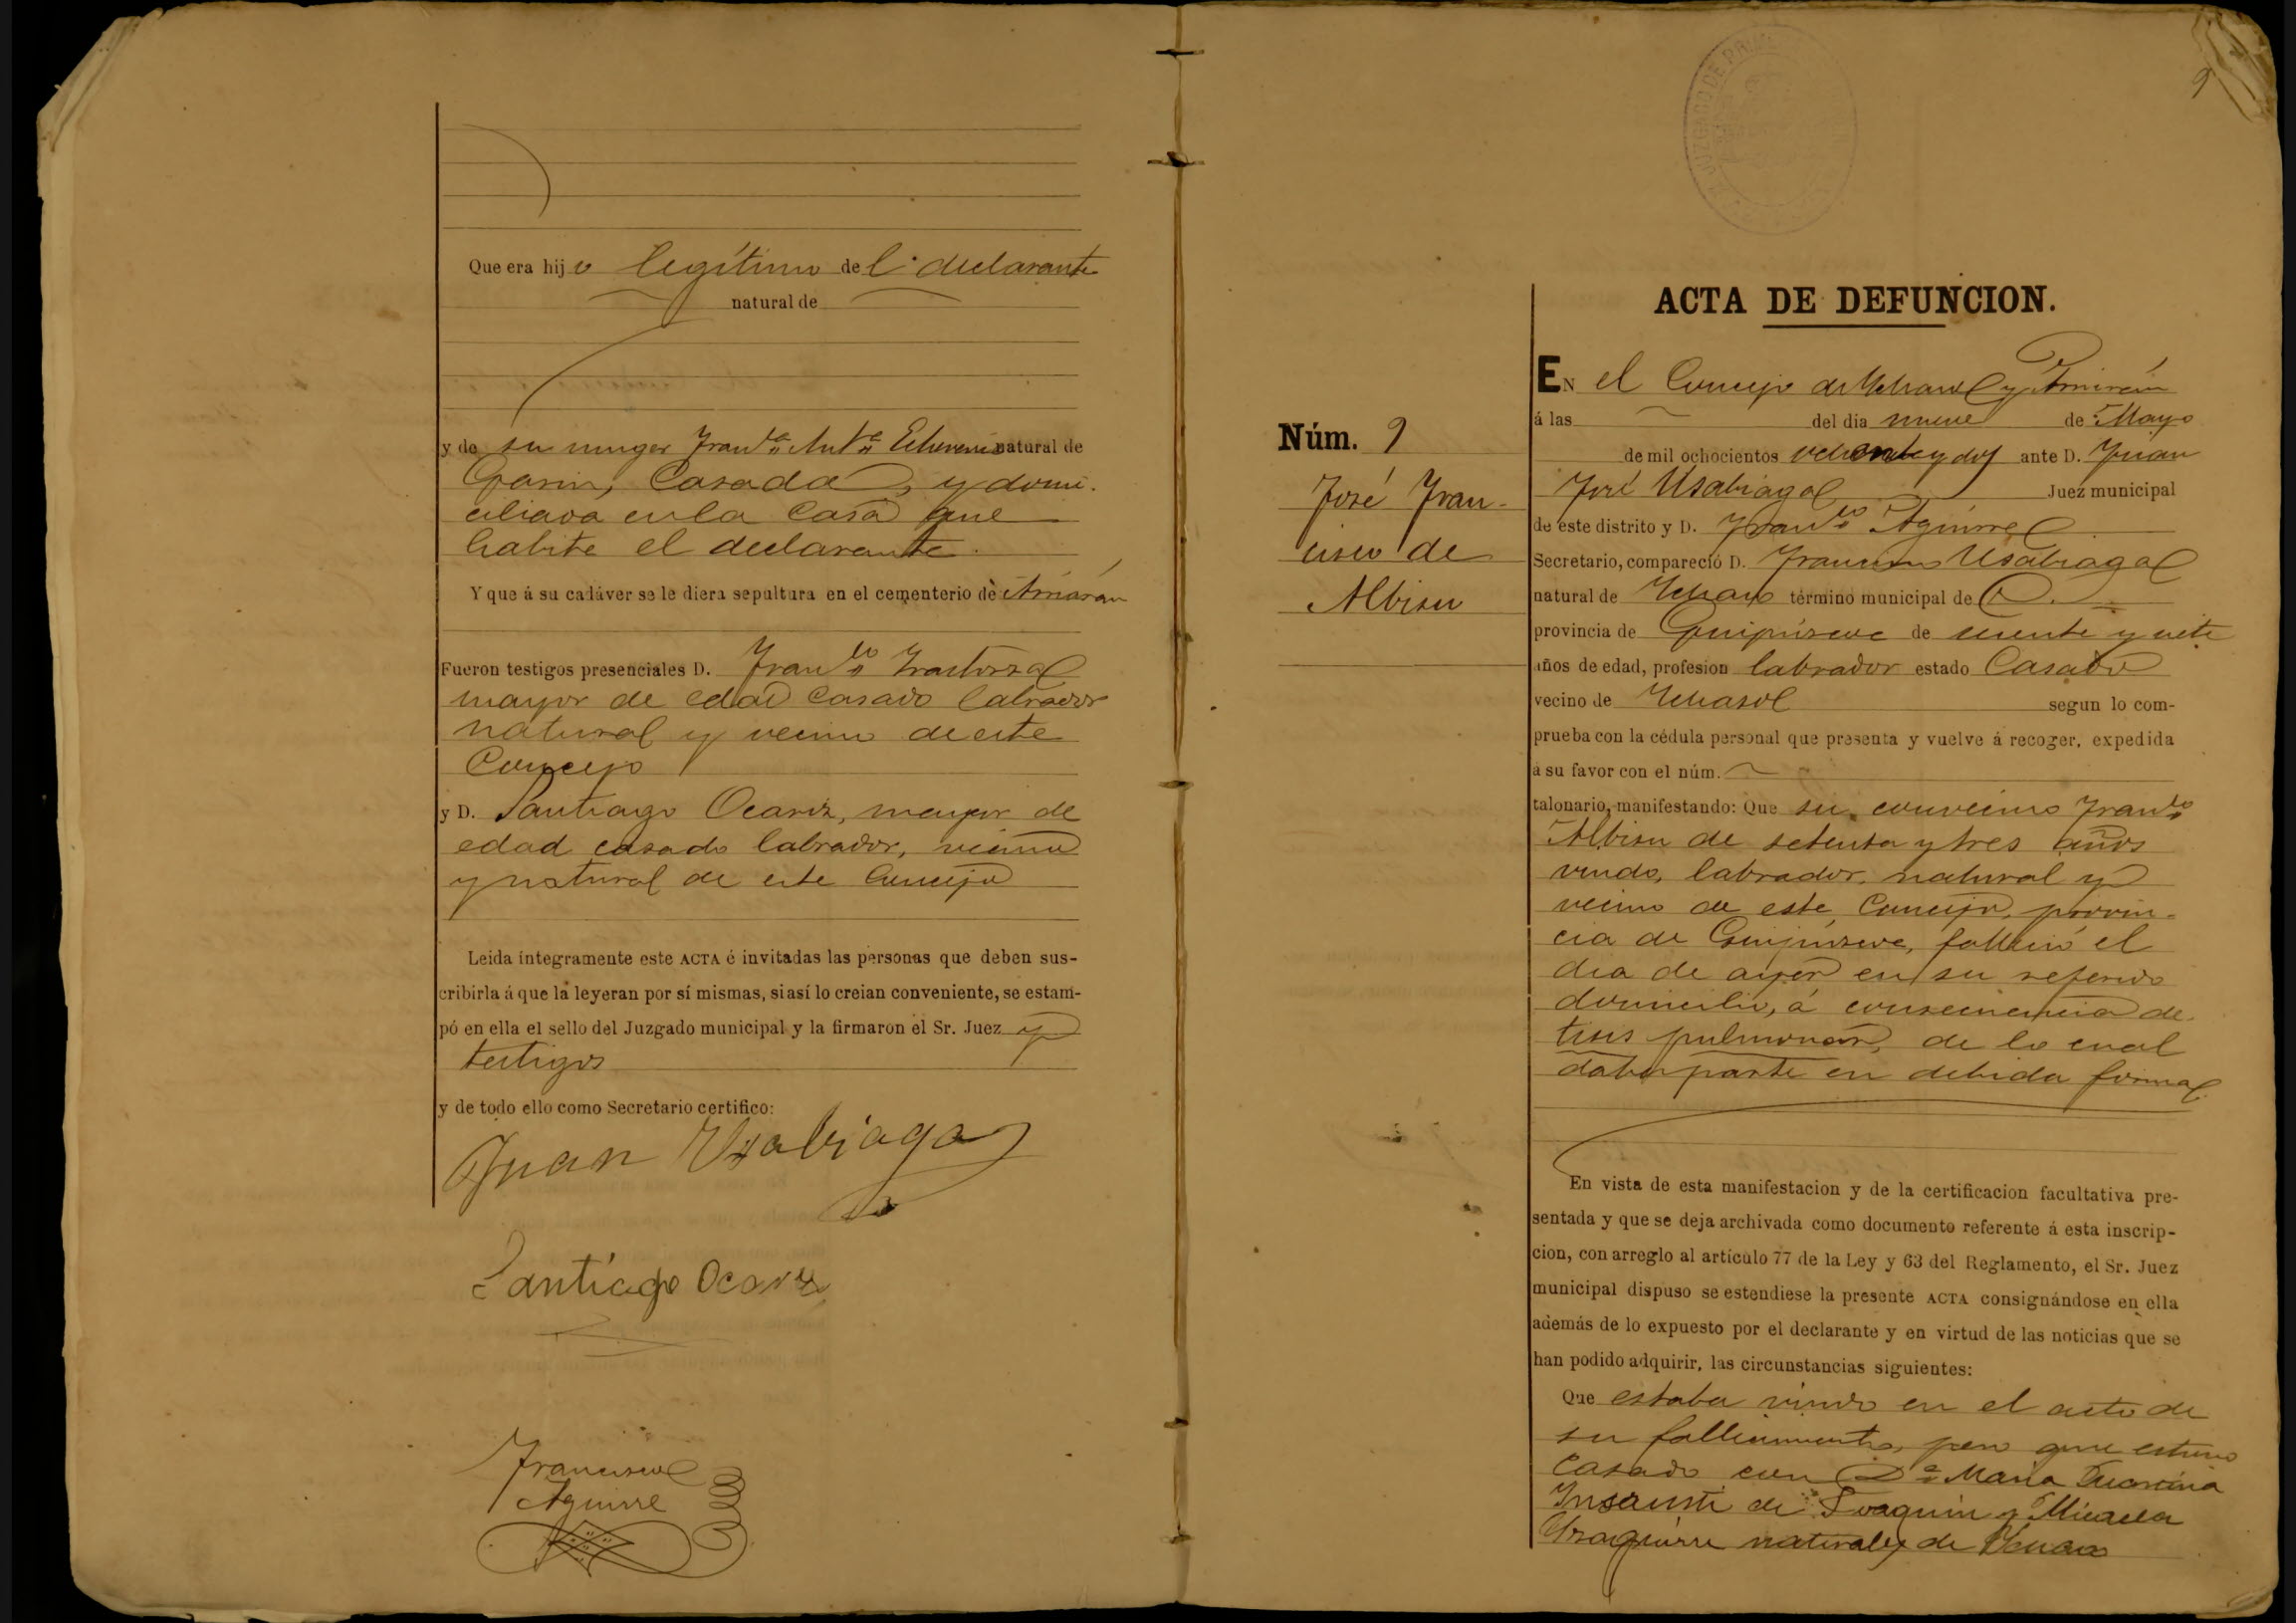 Que era hijo legítimo del declarante
natural de
y de su muger Fran.ca Ant.a Echeverria natural de
Gavin, Casada, y domi-
ciliada en la Casa que
habita el declarante.
Y que á su cadáver se le diera sepultura en el cementerio de Arriarán
Fueron testigos presenciales D. Fran.co Irastorza
mayor de edad casado labrador
natural y vecino de este
Concejo
y D. Santiago Ocariz, mayor de
edad casado labrador, vecino
y natural de este Concejo
Leida íntegramente este ACTA é invitadas las personas que deben sus-
cribirla á que la leyeran por sí mismas, si así lo creian conveniente, se estam-
pó en ella el sello del Juzgado municipal y la firmaron el Sr. Juez y
testigos
y de todo ello como Secretario certifico:
Juan Usabiaga
Santiago Ocariz
Francisco
Aguirre
9
JUZGADO DE PRIM
ACTA DE DEFUNCION.
Núm. 9
José Fran-
cisco de
Albisu
EN el Concejo de Ychaso y Arriarán
á las del dia nueve de Mayo
de mil ochocientos ochenta y dos ante D. Juan
José Usabiaga Juez municipal
de este distrito y D. Fran.co Aguirre
Secretario, compareció D. Francisco Usabiaga
natural de Ychaso término municipal de
provincia de Guipúzcoa de y siete
años de edad, profesion labrador estado Casado
vecino de Ychaso segun lo com-
prueba con la cédula personal que presenta y vuelve á recoger, expedida
á su favor con el núm.
talonario, manifestando: Que su convecino Fran.co
Albisu de setenta y tres años
viudo, labrador, natural y
vecino de este Concejo, provin-
cia de Guipúzcoa, falleció el
dia de ayer en su referido
domicilio, á consecuencia de
tisis pulmonar, de lo cual
daba parte en debida forma
En vista de esta manifestacion y de la certificacion facultativa pre-
sentada y que se deja archivada como documento referente á esta inscrip-
cion, con arreglo al artículo 77 de la Ley y 63 del Reglamento, el Sr. Juez
municipal dispuso se estendiese la presente ACTA consignándose en ella
además de lo expuesto por el declarante y en virtud de las noticias que se
han podido adquirir, las circunstancias siguientes:
Que estaba viudo en el acto de
su fallecimiento, pero que estuvo
Casado con D.a Maria
Insausti de Joaquin y Micaela
Yraguirre naturales de Ychaso